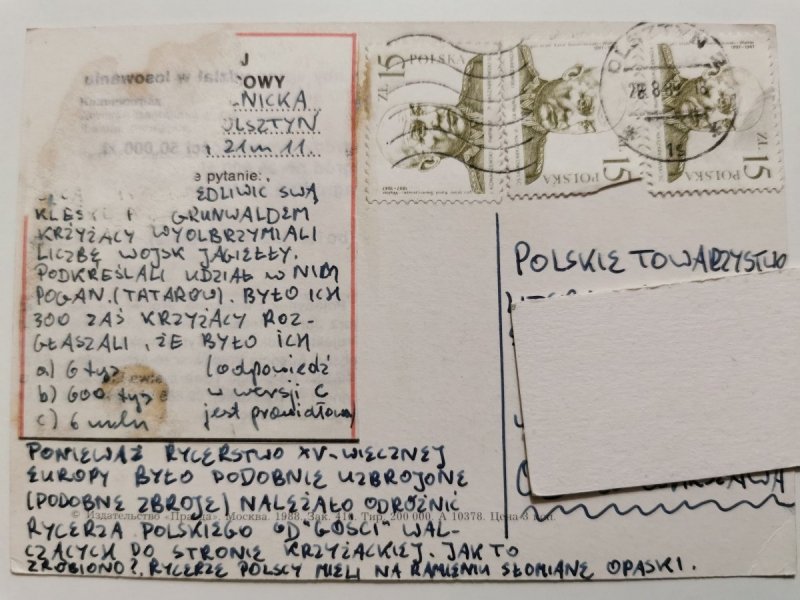 J
OWY
NICKA
OLSZTYN
21 m 11
e pytanie:
EDLIWIĆ SWĄ
KLĘSKĘ GRUNWALDEM
KRZYŻACY WYOLBRZYMIALI
LICZBĘ WOJSK JAGIEŁŁY.
PODKREŚLALI UDZIAŁ W NIM
POGAN. (TATARÓW). BYŁO ICH
300 ZAŚ KRZYŻACY ROZ-
GŁASZALI, ŻE BYŁO ICH
a) 6 tys (odpowiedź
b) 600 tys w wersji c
c) 6 mln jest prawidłowa
PONIEWAŻ RYCERSTWO XV-WIECZNEJ
EUROPY BYŁO PODOBNIE UZBROJONE
(PODOBNE ZBROJE) NALEŻAŁO ODRÓŻNIĆ
© Издательство «Правда». Москва. 1988. Зак. 410. Тир. 200 000. А 10378. Цена 3 коп.
RYCERZA POLSKIEGO OD "GOŚCI" WAL-
CZĄCYCH PO STRONIE KRZYŻACKIEJ. JAK TO
ZROBIONO?. RYCERZE POLSCY MIELI NA RAMIENIU SŁOMIANE OPASKI.
POLSKA ZŁ 15
POLSKA ZŁ 15
POLSKA ZŁ 15
OLSZTYN
POLSKIE TOWARZYSTWO